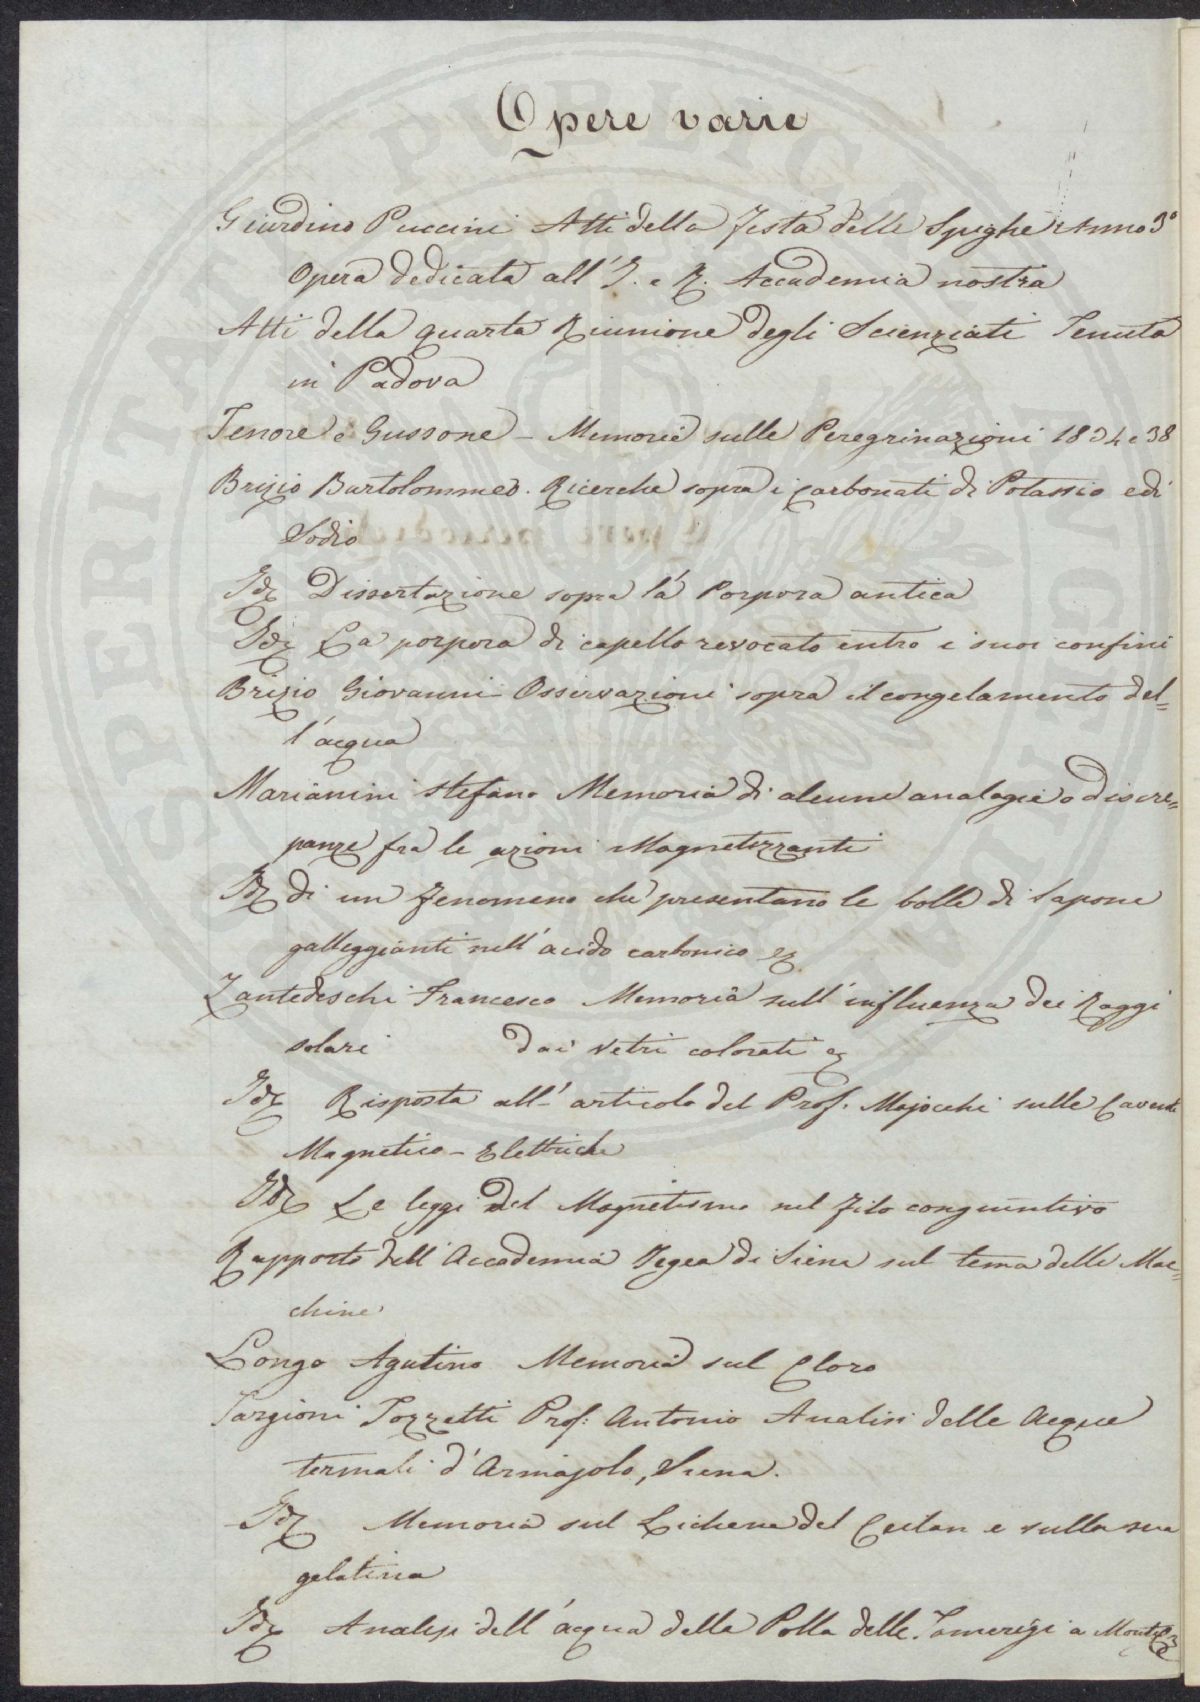 Opere varie
Giardino Puccini Atti della Festa delle Spighe Anno 3°
Opera dedicata all' I. e R. Accademia nostra
Atti della quarta Riunione degli Scienziati Tenuta
in Padova
Tenore e Gussone - Memorie sulle Peregrinazioni 1834 e 38
Brizio Bartolommeo. Ricerche sopra i carbonati di Potassio e di
Sodio
Id Dissertazione sopra la Porpora antica
Id La porpora di capello revocato entro i suoi confini
Brizio Giovanni Osservazioni sopra il congelamento del=
l'acqua
Marianini Stefano Memoria di alcune analogie o discre=
panze fra le azioni Magnetizzanti
Id di un fenomeno che presentano le bolle di Sapone
galleggianti nell'acido carbonico
Zantedeschi Francesco Memoria sull'influenza dei Raggi
solari dai vetri colorati
Id Risposta all'articolo del Prof. Majocchi sulle
Magnetico-Elettriche
Id Le leggi del Magnetismo nel filo congiuntivo
Rapporto dell'Accademia Tegea di Siena sul tema delle Mac=
chine
Longo Agatino Memoria sul Cloro
Targioni Tozzetti Prof. Antonio Analisi delle Acque
termali d'Armajolo, Siena.
Id Memoria sul Lichene del Ceilan e sulla sua
gelatina
Id Analisi dell'acqua della Polla delle Tamerigi a